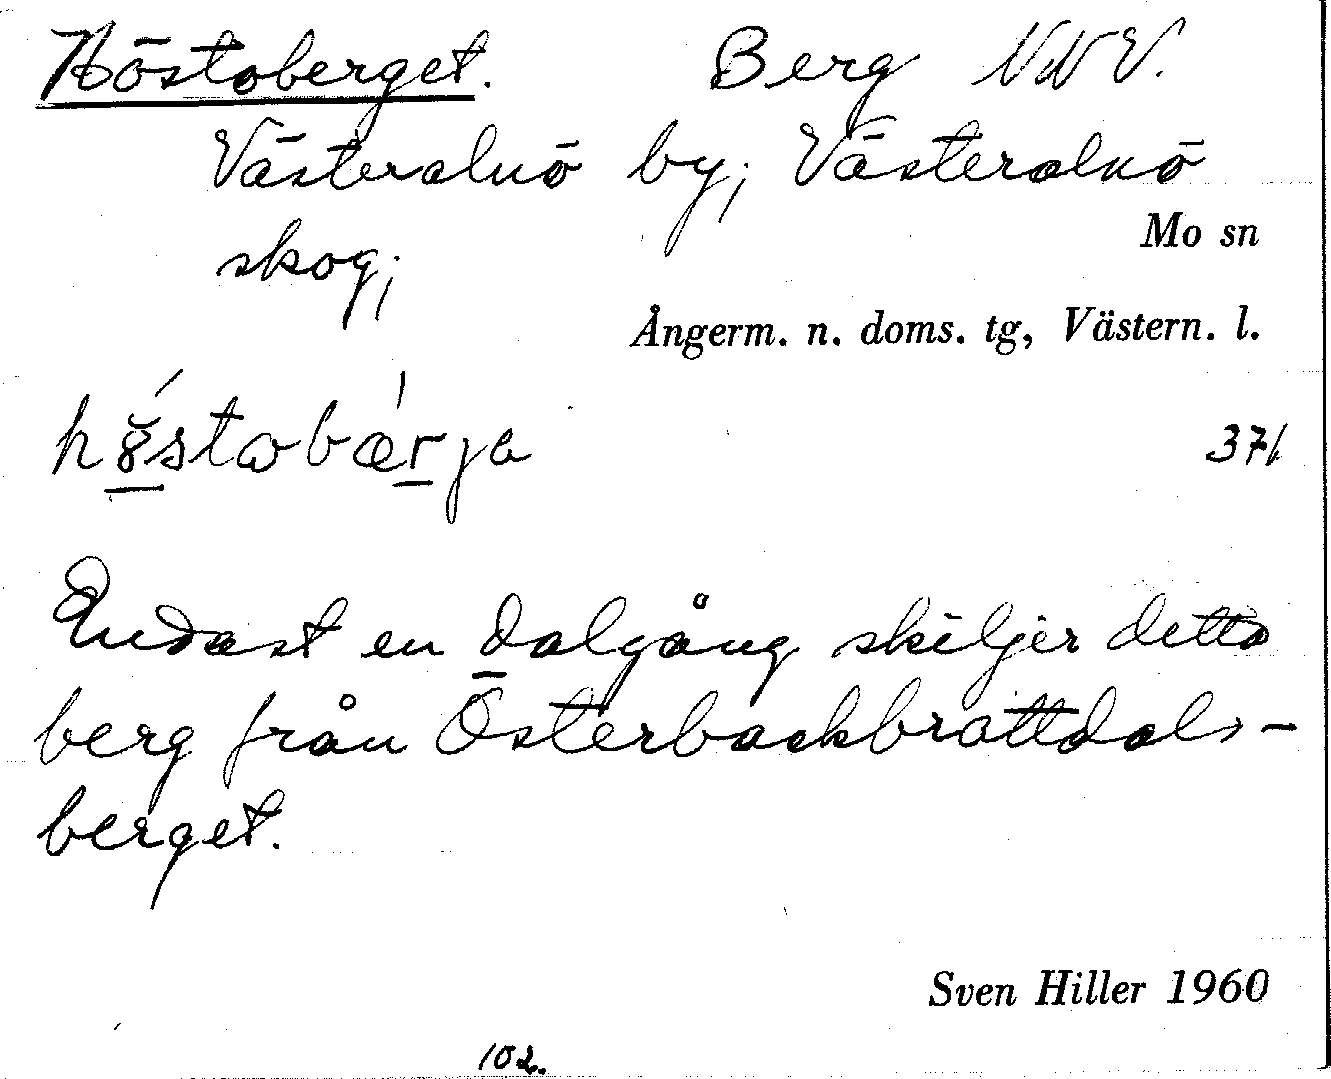 Höstoberget. Berg NNV.
Västeralnö by; Västeralnö
Mo sn
skog;
Ångerm. n. doms. tg, Västern. l.
376
Endast en dalgång skiljer detta
berg från Österbackbrattdals-
berget.
Sven Hiller 1960
102.